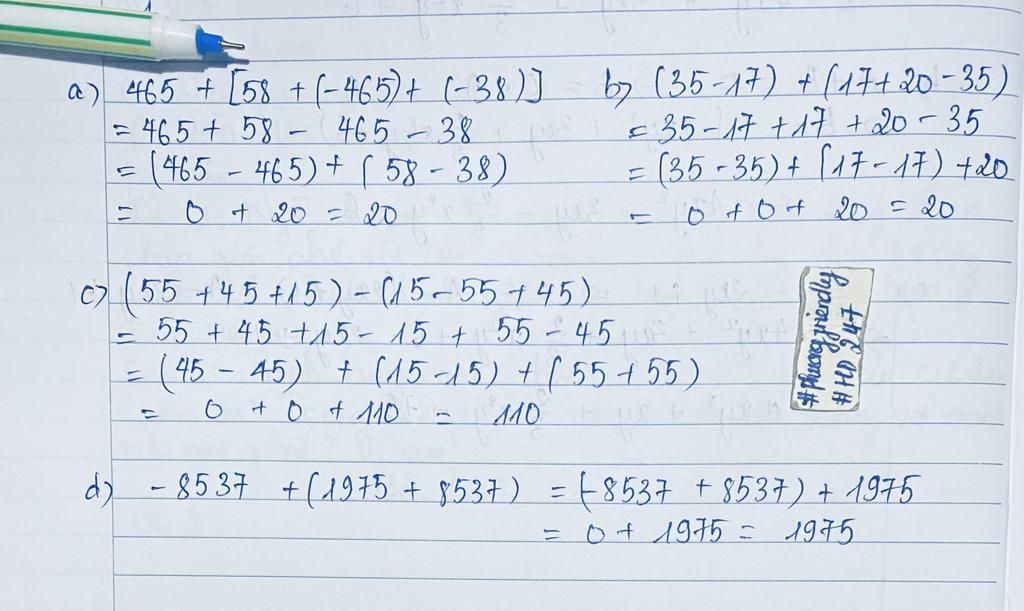 a) 465 + [58 + (-465) + (-38)]
= 465 + 58 - 465 - 38
= (465 - 465) + (58 - 38)
= 0 + 20 = 20
b) (35 - 17) + (17 + 20 - 35)
= 35 - 17 + 17 + 20 - 35
= (35 - 35) + (17 - 17) + 20
= 0 + 0 + 20 = 20
c) (55 + 45 + 15) - (15 - 55 + 45)
= 55 + 45 + 15 - 15 + 55 - 45
= (45 - 45) + (15 - 15) + (55 + 55)
= 0 + 0 + 110 = 110
# HD 247
d) - 8537 + (1975 + 8537) = (-8537 + 8537) + 1975
= 0 + 1975 = 1975